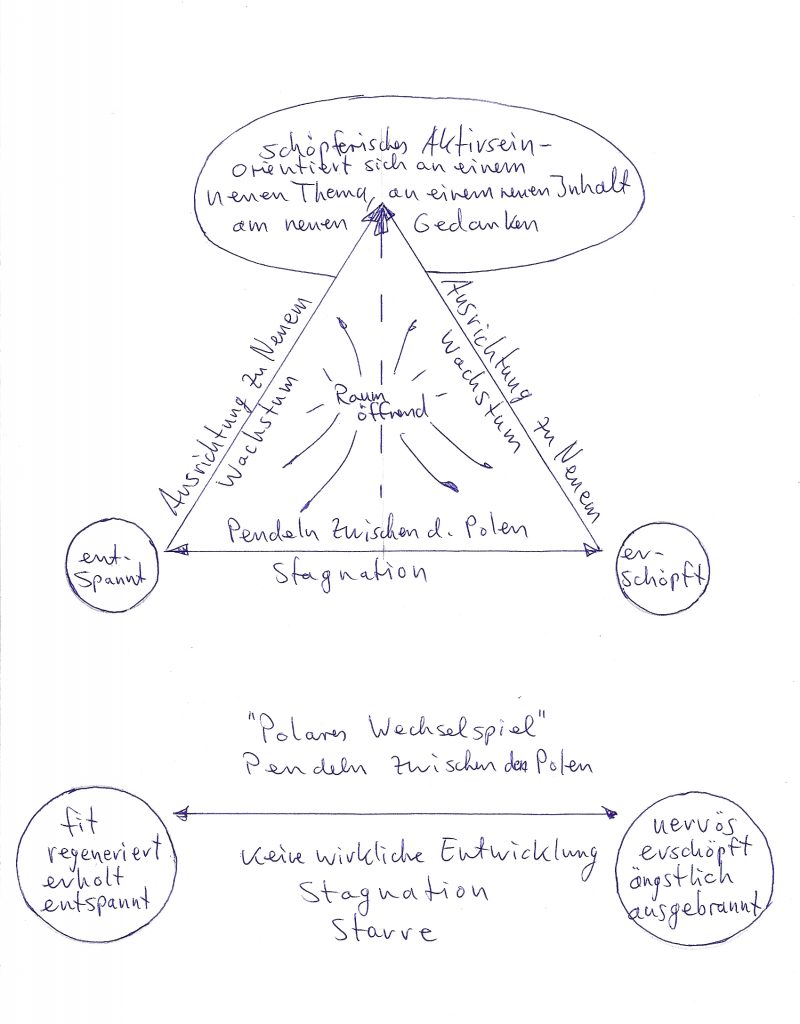 schöpferisches Aktivsein-
orientiert sich an einem
neuen Thema, an einem neuen Inhalt
am neuen Gedanken
Ausrichtung zu Neuem
Wachstum
Ausrichtung zu Neuem
Wachstum
Raum
öffnend
Pendeln zwischen d. Polen
Stagnation
ent-
spannt
er-
schöpft
"Polares Wechselspiel"
Pendeln zwischen den Polen
fit
regeneriert
erholt
entspannt
Keine wirkliche Entwicklung
Stagnation
Starre
nervös
erschöpft
ängstlich
ausgebrannt